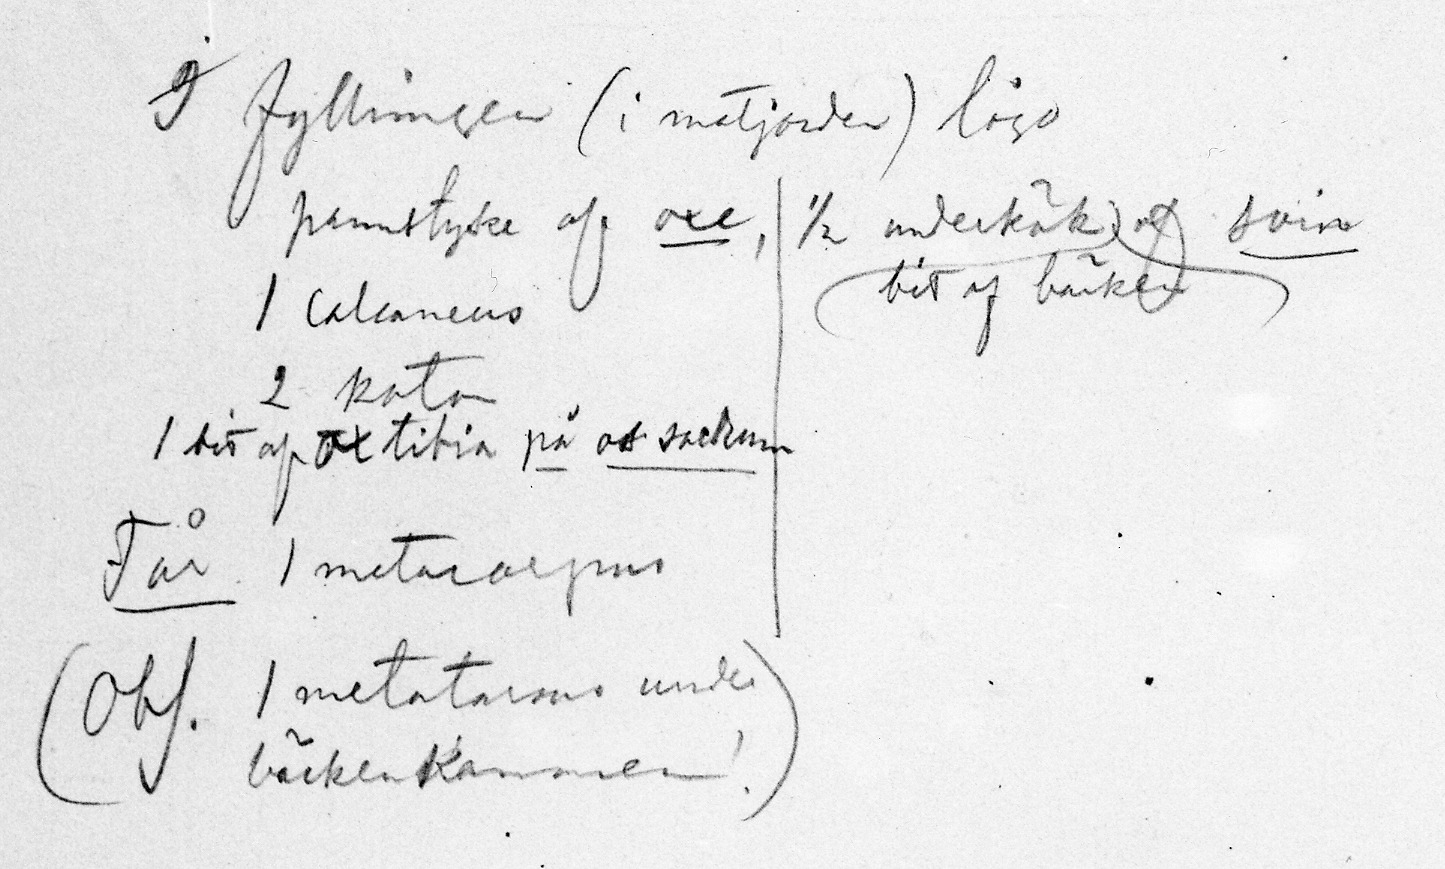 I fyllningen (i matjorden) lågo
pannstycke af oxe, ½ underkäk af svin
bit af bäcken
1 calcaneus
2 kotor
1 bit af ox tibia på os sacrum
Får 1 metacarpus
(Obs. 1 metatarsus under
bäckenkammen!)